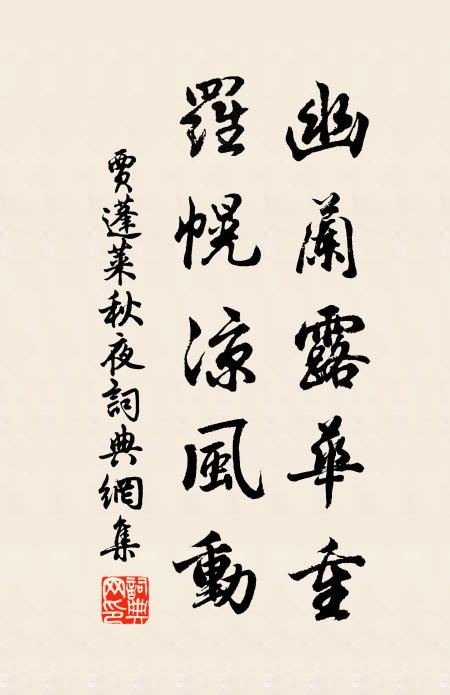 幽蘭露華重
羅幌涼風動
賈蓬萊秋夜詞典網集
詞典網印